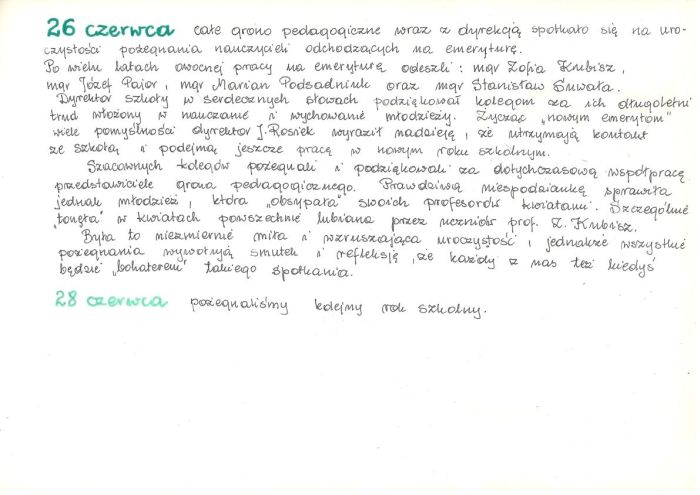 26 czerwca całe grono pedagogiczne wraz z dyrekcją spotkało się na uro-
czystości pożegnania nauczycieli odchodzących na emeryturę.
Po wielu latach owocnej pracy na emeryturę odeszli: mgr Zofia Kubisz,
mgr Józef Pajor, mgr Marian Podsadniuk oraz mgr Stanisław Suwała.
Dyrektor szkoły w serdecznych słowach podziękował kolegom za ich długoletni
trud włożony w nauczanie i wychowanie młodzieży. Życząc „nowym emerytom"
wiele pomyślności dyrektor J. Rosiek wyraził nadzieję, że utrzymają kontakt
ze szkołą i podejmą jeszcze pracę w nowym roku szkolnym.
Szacownych kolegów pożegnali i podziękowali za dotychczasową współpracę
przedstawiciele grona pedagogicznego. Prawdziwą niespodziankę sprawiła
jednak młodzież, która „obsypała" swoich profesorów kwiatami. Szczególnie
„tonęła" w kwiatach powszechnie lubiana przez uczniów prof. Z. Kubisz.
Była to niezmiernie miła i wzruszająca uroczystość, jednakże wszystkie
pożegnania wywołują smutek i refleksję, że każdy z nas też kiedyś
będzie „bohaterem" takiego spotkania.
28 czerwca pożegnaliśmy kolejny rok szkolny.